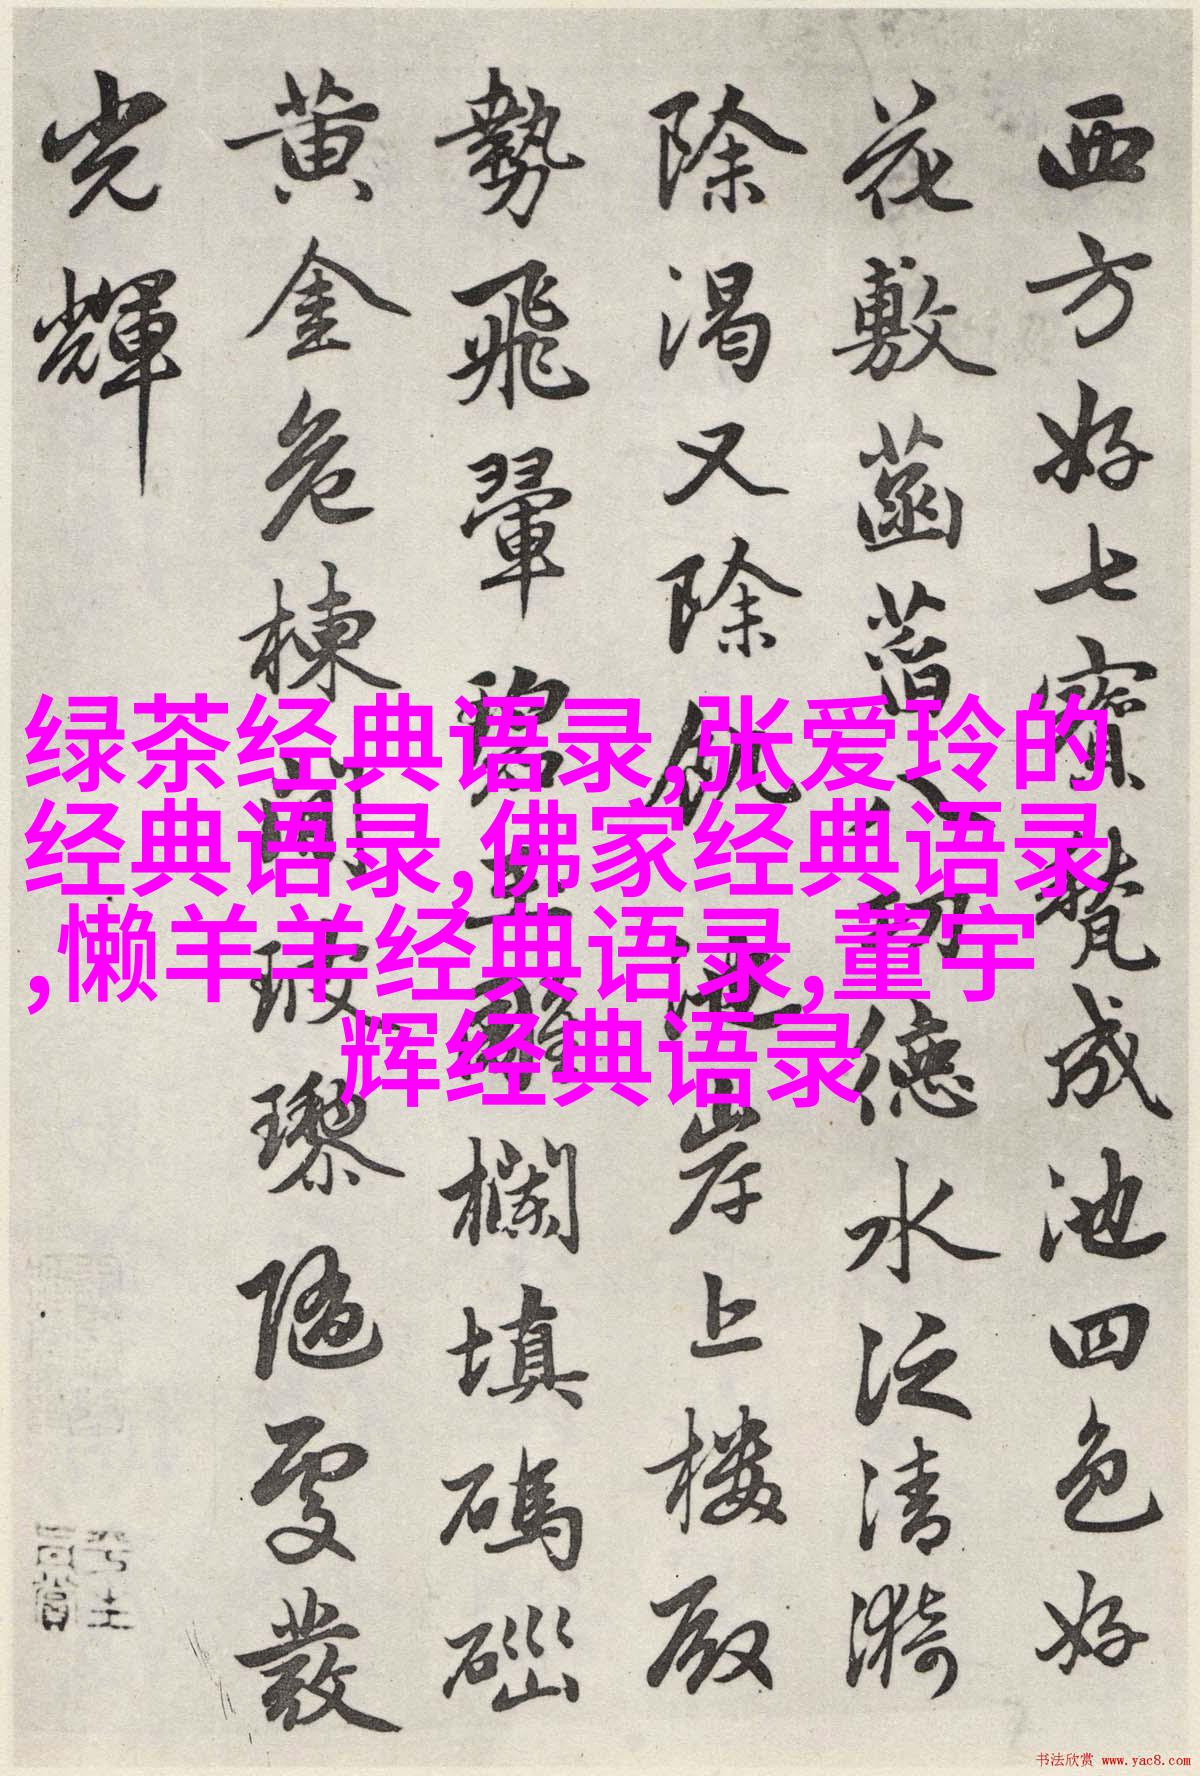 西方好七寶甃成池四色好
花敷菡萏八功德水泛清漪
除渴又除飢池岸上樓殿
勢飛翬碧玉雕欄填碼碯
黃金危棟間玻瓈隨處發
光輝
绿茶经典语录,张爱玲的
经典语录,佛家经典语录
,懒羊羊经典语录,董宇
辉经典语录
书法欣赏 www.yac8.com